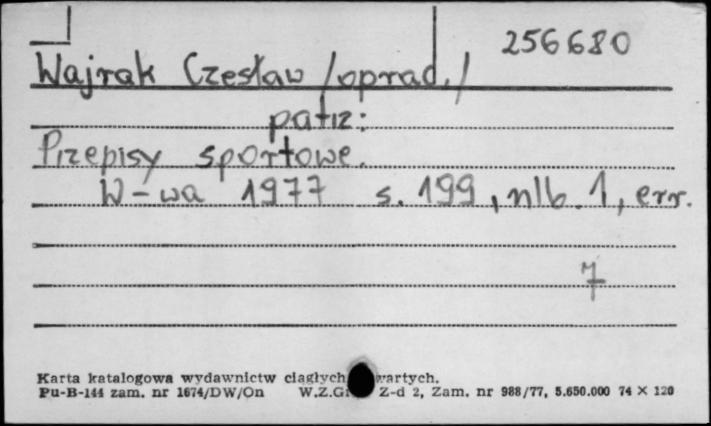 256680
Wajrak Czesław /oprac./
patrz:
Przepisy sportowe.
W-wa 1977 s. 199, nlb. 1, err.
7
Karta katalogowa wydawnictw ciągłych
Pu-B-144 zam. nr 1674/DW/On W.Z.G Z-d 2, Zam. nr 988/77, 5.650.000 74 × 120